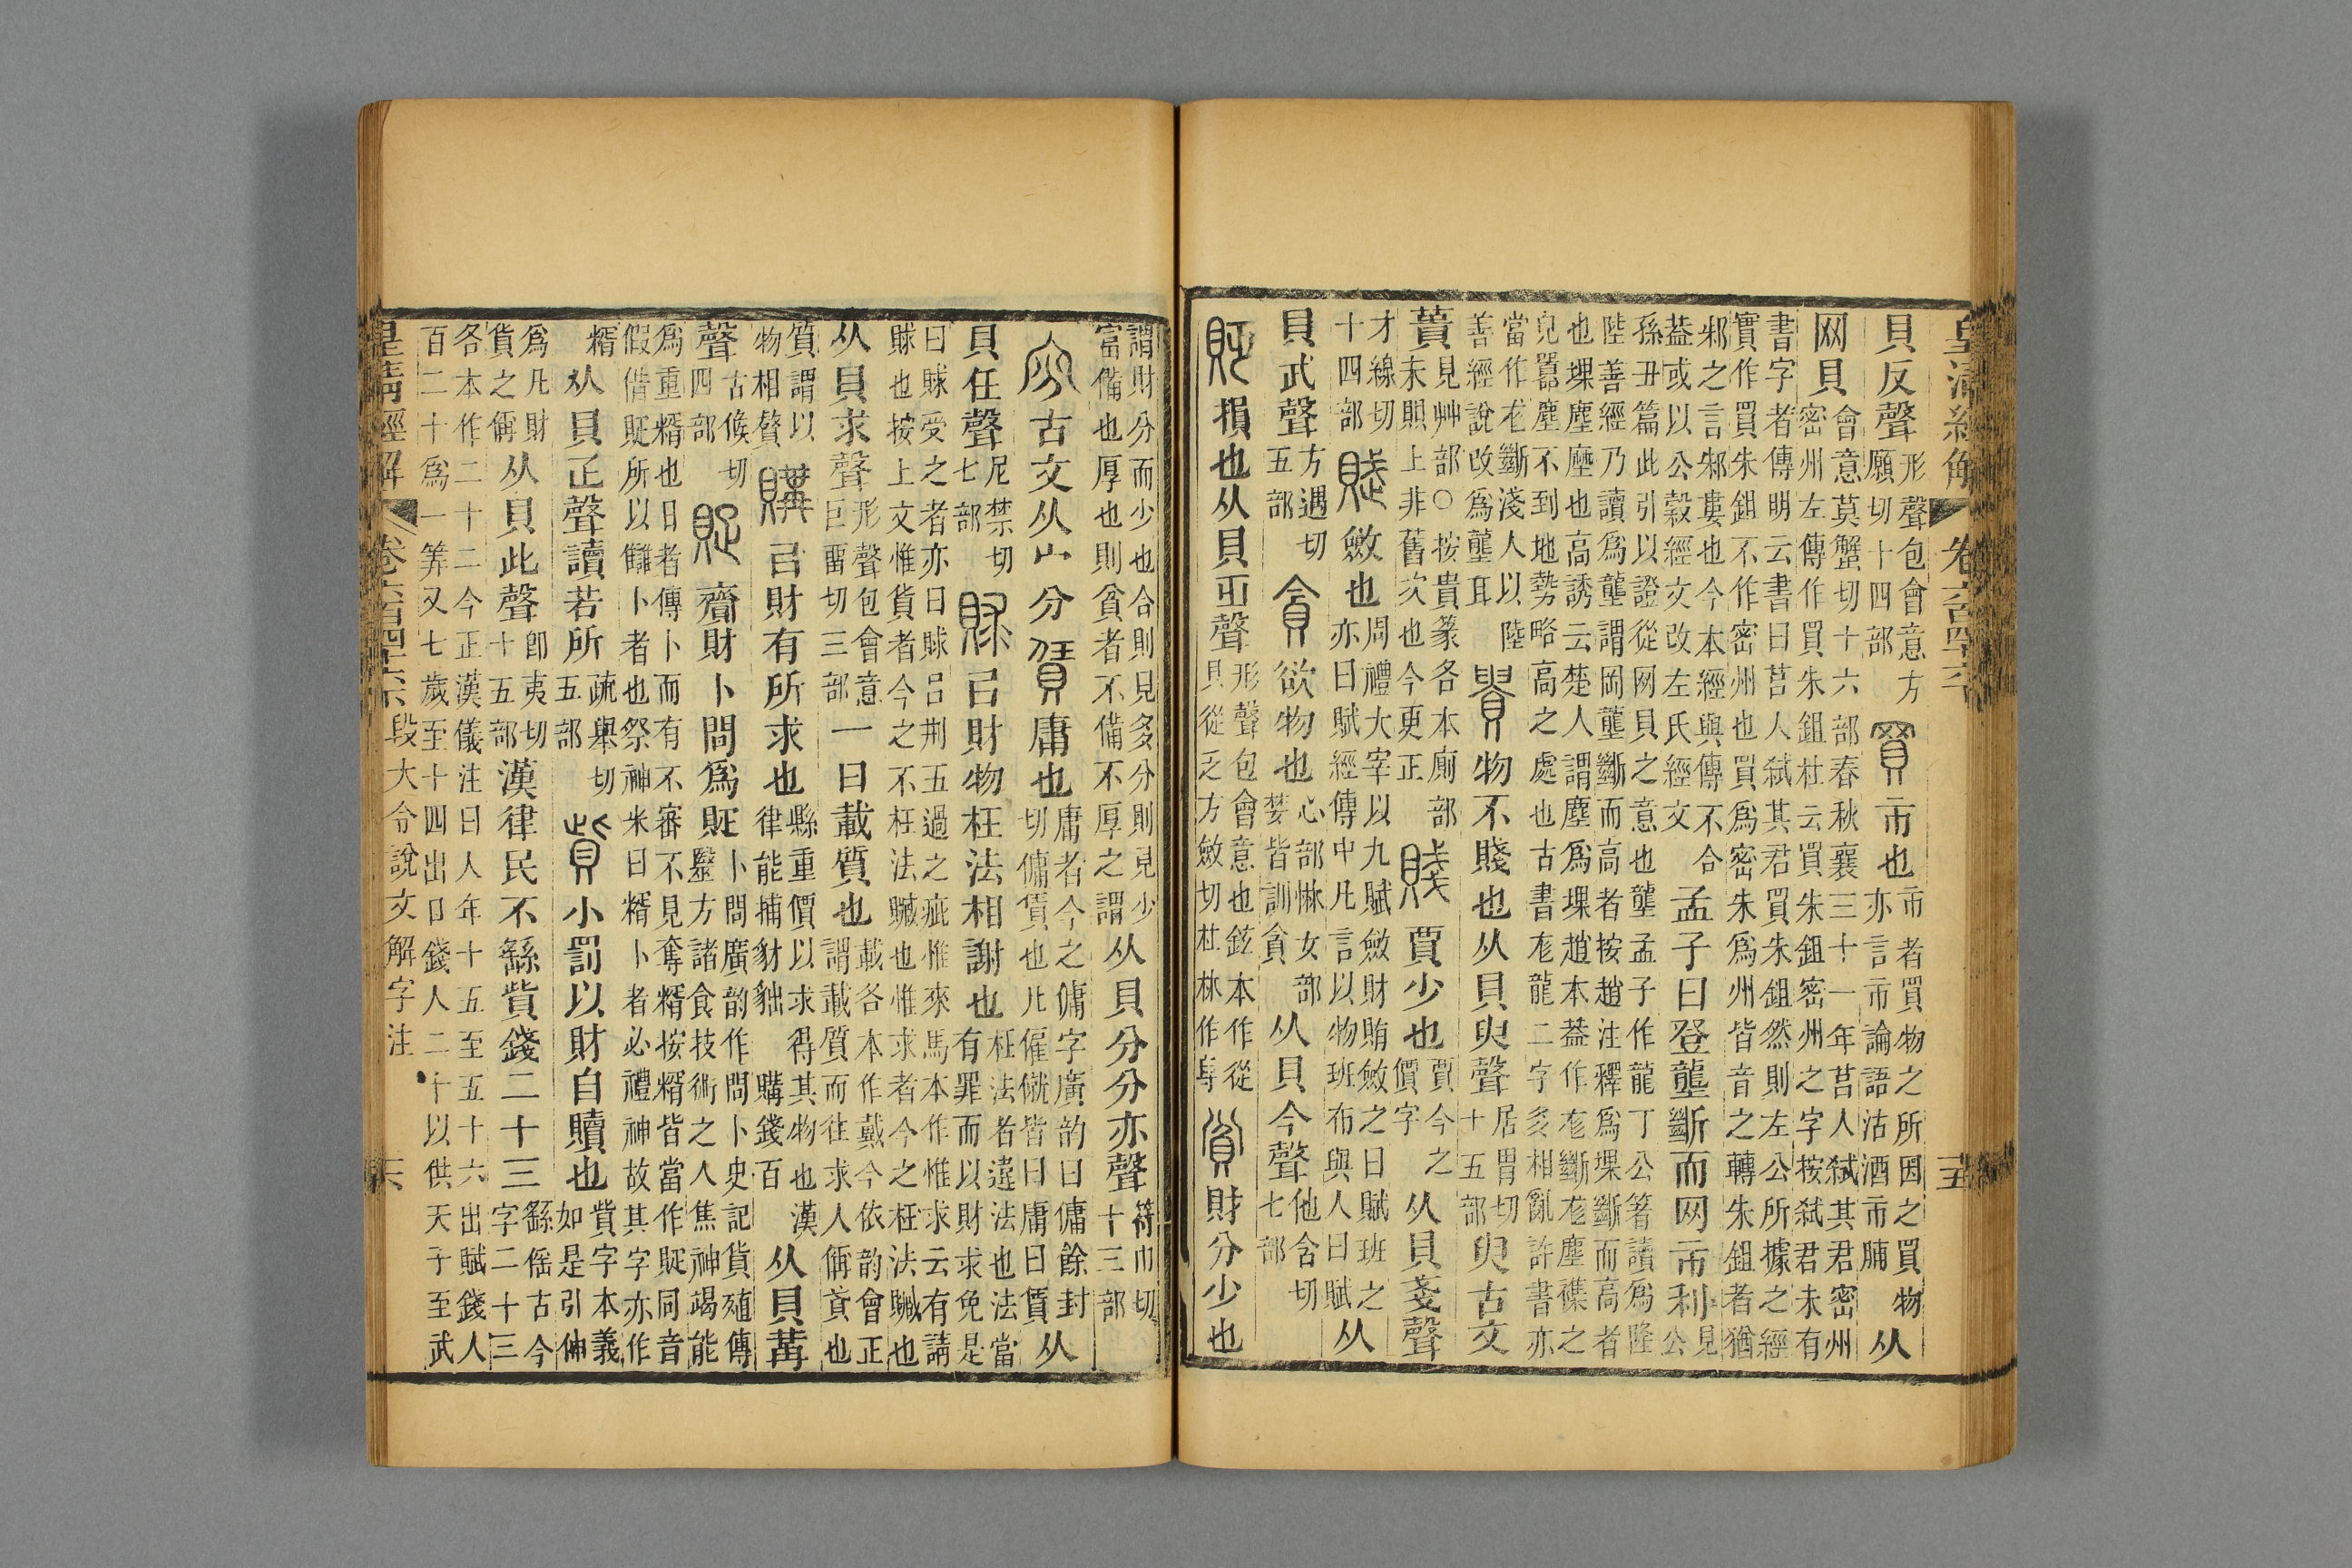 皇清經解 卷六百四十六下 十五
貝反聲形聲包會意方願切十四部買市也市者買物之所因之買物亦言市論語沽酒市脯从
网貝會意莫蟹切十六部春秋襄三十一年莒人弑其君密州密州左傳作買朱鉏杜云買朱鉏密州之字按弑君未有
書字者傳明云書曰莒人弑其君買朱鉏然則左公所據之經實作買朱鉏不作密州也買爲密朱爲州皆音之轉朱鉏者猶
邾之言邾婁也今本經與傳不合葢或以公穀經文改左氏經文孟子曰登壟斷而网市利見公
孫丑篇此引以證從网貝之意也壟孟子作龍丁公箸讀爲隆陸善經乃讀爲壟謂岡壟斷而高者按趙注釋爲堁斷而高者
也堁塵塺也高誘云楚人謂塵爲堁趙本葢作尨斷尨塵襍之皃嚻塵不到地勢略高之處也古書尨龍二字多相亂許書亦
當作尨斷淺人以陸善經說改爲壟耳貴物不賤也从貝臾聲居胃切十五部臾古文
蕢見艸部○按貴篆各本廁部末貺上非舊次也今更正賤賈少也賈今之價字从貝戔聲
才線切十四部賦斂也周禮大宰以九賦斂財賄斂之曰賦班之亦曰賦經傳中凡言以物班布與人曰賦从
貝武聲方遇切五部貪欲物也心部惏女部婪皆訓貪从貝今聲他含切七部
貶損也从貝𠂜聲形聲包會意也鉉本作從貝從乏方斂切杜林作𠭥貧財分少也
謂財分而少也合則見多分則見少富備也厚也則貧者不備不厚之謂从貝分分亦聲符巾切十三部
古文从宀分賃庸也庸者今之傭字廣韵曰傭餘封切傭賃也凡僱僦皆曰庸曰賃从
貝任聲尼禁切七部賕㠯財物枉法相謝也枉法者違法也法當有罪而以財求免是
曰賕受之者亦曰賕呂荆五過之疵惟來馬本作惟求云有請賕也按上文惟貨者今之不枉法贓也惟求者今之枉法贓也
从貝求聲形聲包會意巨畱切三部一曰載質也載各本作戴今依韵會正謂載質而往求人偁貣也
質謂以物相贅購㠯財有所求也縣重價以求得其物也漢律能捕豺貀購錢百从貝冓
聲古候切四部𧵥齎財卜問爲𧵥卜問廣韵作問卜史記貨殖傳毉方諸食技術之人焦神竭能
爲重糈也日者傳卜而有不審不見奪糈按糈皆當作𧵥同音假借𧵥所以讎卜者也祭神米曰糈卜者必禮神故其字亦作
糈从貝疋聲讀若所疏舉切五部貲小罰以財自贖也貲字本義如是引伸
爲凡財貨之偁从貝此聲卽夷切十五部漢律民不繇貲錢二十三繇傜古今字二十三
各本作二十二今正漢儀注曰人年十五至五十六出賦錢人百二十爲一筭又七歲至十四出口錢人二十以供天子至武
皇清經解 卷六百四十六下 段大令說文解字注